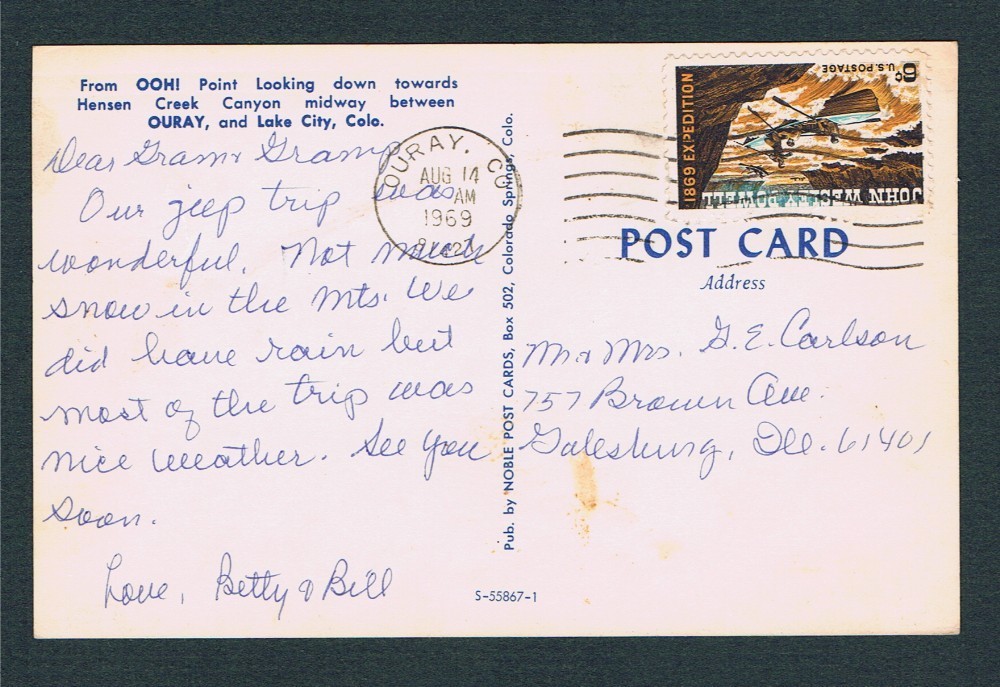 From OOH! Point Looking down towards
Hensen Creek Canyon midway between
OURAY, and Lake City, Colo.
Dear Gram & Gramp
Our jeep trip was
wonderful. Not much
snow in the Mts. We
did have rain but
most of the trip was
nice weather. See you
soon.
Love, Betty & Bill
OURAY, CO
AUG 14
AM
1969
Pub. by NOBLE POST CARDS, Box 502, Colorado Springs, Colo.
S-55867-1
JOHN WESLEY POWELL
1869 EXPEDITION
U.S. POSTAGE
6c
POST CARD
Address
Mr & Mrs. G. E. Carlson
757 Brown Ave.
Galesburg, Ill. 61401